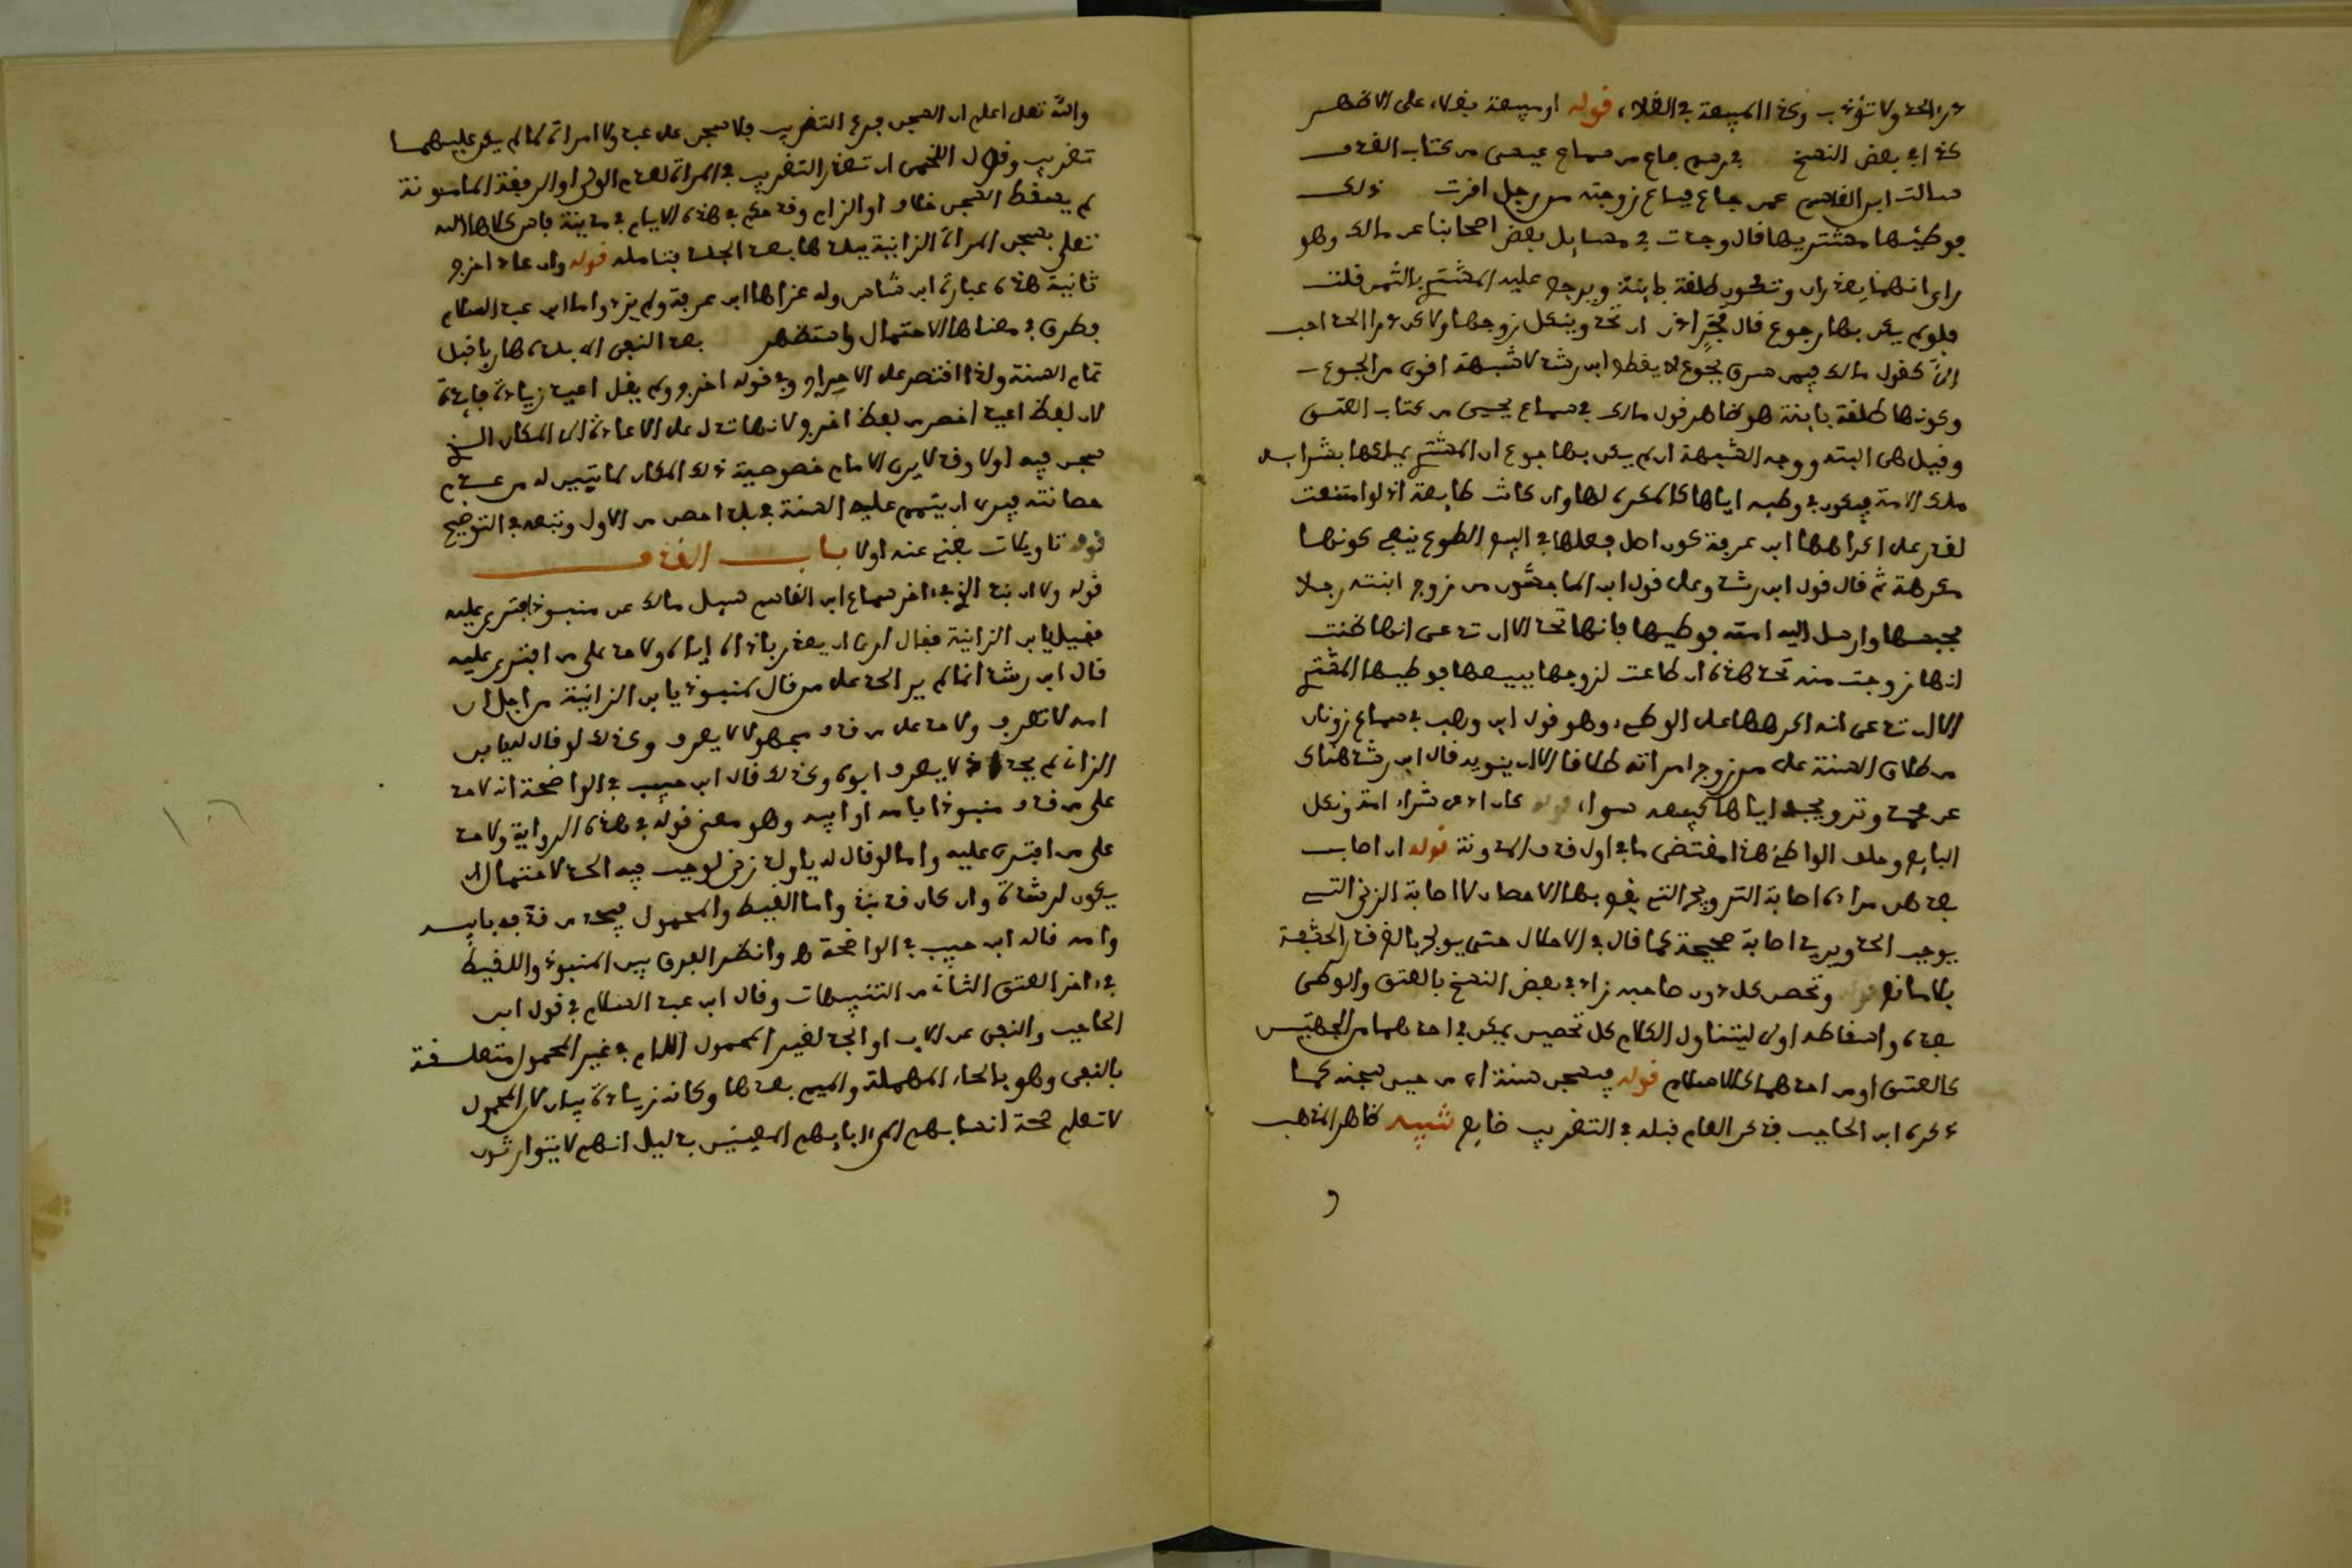 درء الحد ولا تؤدب وكذا المبيعة في الغلاء، قوله او مبيعة بغلاء على الاظهر
كذا في بعض النسخ في رسم باع من سماع عيسى من كتاب القذف
سألت ابن القاسم عمن جاع فباع زوجته من رجل اقرت ذلك
فوطئها مشتريها قال وجدت في مسايل بعض اصحابنا عن مالك وهو
راي انهما يعذران وتكون طلقة باينة ويرجع عليه المشتري بالثمن قلت
فلو لم يكن بها رجوع قال فحري ان تحد وينكل زوجها ولكن درا الحد احب
الي كقول مالك فيمن سرق لجوع لا يقطع ابن رشد لا شبهة اقوى من الجوع
وكونها طلقة باينة هو ظاهر قول مالك في سماع يحيى من كتاب العتق
وقيل هي البتة ووجه الشبهة ان لم يكن بها جوع ان المشتري يملكها بشرايه
ملك الامة فيكون في وطيه اياها كالمكره لها وان كانت طايعة اذ لو امتنعت
لقدر على اكراهها ابن عرفة كون اصل فعلها في البيع الطوع ينفي كونها
مكرهة ثم قال قول ابن رشد وعلى قول ابن الماجشون من زوج ابنته رجلا
فحبسها وارسل اليه امته فوطيها فانها تحد الا ان تدعي انها ظنت
انها زوجت منه تحد هذه ان طاعت لزوجها ببيعها فوطيها المشتري
الا ان تدعي انه اكرهها على الوطء، وهو قول ابن وهب في سماع زونان
من طلاق السنة على من زوج امراته طلاقا الا ان ينويه قال ابن رشد هناك
عن محمد وتزويجه اياها كبيعه سواء، قوله كان ادعى شراء امة ونكل
البايع وحلف الواطئ هذا مقتضى ما في اول قذف المدونة قوله ان اصاب
بعد هن مراده اصابة التزويج التي يقع بها الاحصان لا اصابة الزنى التي
يوجب الحد ويريد اصابة صحيحة كما قال في الاحلال حتى يولج بالغ قدر الحشفة
بلا مانع قوله وتحصن كل دون صاحبه زاد في بعض النسخ بالعتق والوطي
بعده واسقاطه اولى ليتناول الكلام كل تحصين يمكن في احدهما من الجهتين
كالعتق او من احدهما كالاسلام قوله فيسجن سنة اي من حين سجنه كما
ذكره ابن الحاجب فذكر العام قبله في التغريب ضايع شبيه ظاهر المذهب
و
والله تعلى اعلم ان السجن فرع التغريب فلا سجن على عبد ولا امراة لما لم يكن عليهما
تغريب وقول اللخمي ان تعذر التغريب في المراة لعدم الولي او الرفقة المامونة
لم يسقط السجن خلاف او الزام وقد حكم في هذه الايام في مدينة فاس كلاها الله
تعلى بسجن المراة الزانية ببلدها بعد الجلد فتامله قوله وان عاد اخرج
ثانية هذه عبارة ابن شاس وله عزاها ابن عرفة ولم يزد واما ابن عبد السلام
فطرق في معناها الاحتمال واستظهر بعد النفي الى بلده هاربا قبل
تمام السنة ولذا اقتصر على الاجبار وفي قوله اخرج ولم يقل اعيد زيادة فايدة
لان لفظ اعيد اخصر من لفظ اخرج لانها تدل على الاعادة الى المكان الذي
سجن فيه اولا وقد لا يرى الامام خصوصية ذلك المكان لما تبين له من عدم
حصانته فيرى ان يتمم عليه السنة في بلد احصن من الاول وتبعه في التوضيح
قوله تاويلات يغني عنه اولا باب القذف
قوله ولا ان نبذ الخ في اخر سماع ابن القاسم سيل مالك عن منبوذ افتري عليه
فقيل يا بن الزانية فقال ارى ان يعزر باذاه اياه ولا حد على من افترى عليه
قال ابن رشد انما لم ير الحد على من قال لمنبوذ يا بن الزانية من اجل ان
امه لا تعرف ولا حد على من قذف مجهولا لا يعرف وكذلك لو قال له يا بن
الزاني لم يحد اذ لا يعرف ابوه وكذلك قال ابن حبيب في الواضحة انه لا حد
على من قذف منبوذا بامه او ابيه وهو معنى قوله في هذه الرواية ولا حد
على من افترى عليه واما لو قال له يا ولد زنى لوجب فيه الحد لاحتمال ان
يكون لرشدة وان كان قد نبذ واما اللقيط والمحمول فيحد من قذفه بابيه
وامه قاله ابن حبيب في الواضحة ه وانظر الفرق بين المنبوذ واللقيط
في اخر العتق الثاني من التنبيهات وقال ابن عبد السلام في قول ابن
الحاجب والنفي عن الاب او الجد لغير المحمول اللام في غير المحمول متعلقة
بالنفي وهو بالحاء المهملة والميم بعدها وكانه زيادة بيان لان المحمول
لا تعلم صحة انسابهم الى ابايهم المعينين بدليل انهم لا يتوارثون
١٠٦